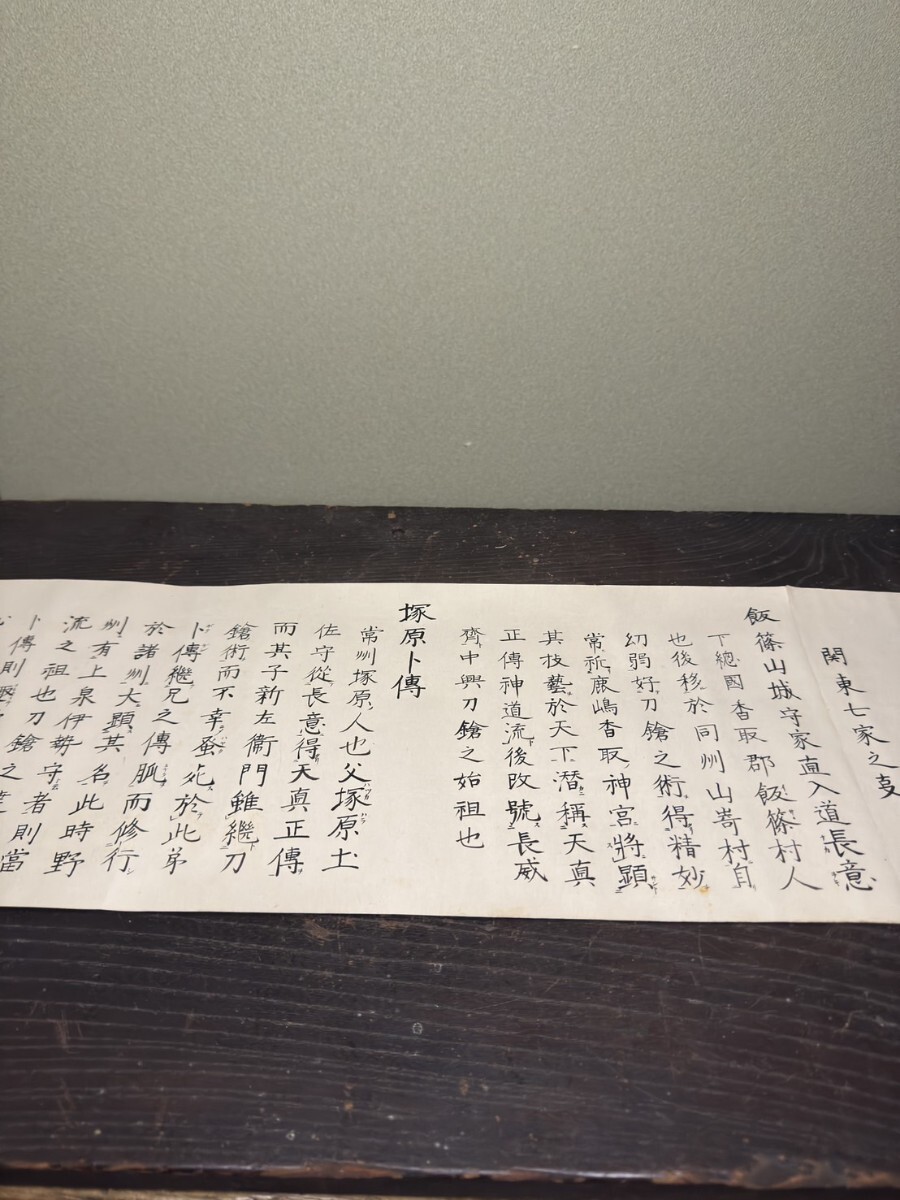 関東七家之支
飯篠山城守家直入道長意
下總國香取郡飯篠村人
也後移於同州山嵜村自
幼弱好刀鎗之術得精妙
常祈鹿嶋香取神宮將顕
其技藝於天下潜稱天真
正傳神道流後改號長威
齊中興刀鎗之始祖也
塚原卜傳
常州塚原人也父塚原土
佐守從長意得天真正傳
而其子新左衞門雖継刀
鎗術而不幸蚤死於此弟
卜傳継兄之傳脈而修行
於諸州大顕其名此時野
州有上泉伊勢守者則當
流之祖也刀鎗之
卜傳則